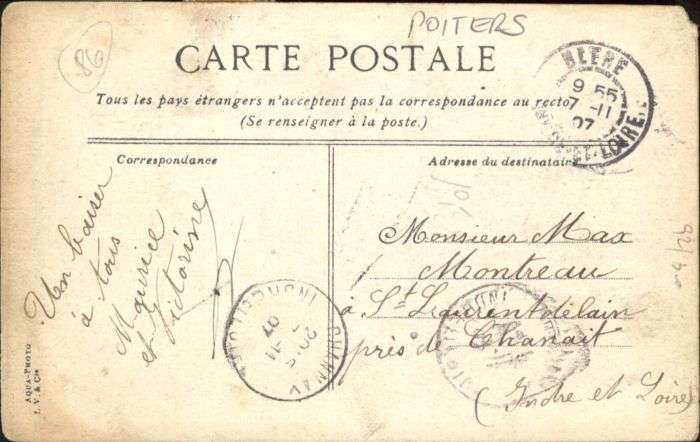 POITERS
86
CARTE POSTALE
Tous les pays étrangers n'acceptent pas la correspondance au recto
(Se renseigner à la poste.)
BLERE
9 55
7 -11
07
INDRE-ET-LOIRE
Correspondance
Adresse du destinataire
Un baiser
à tous
Maurice
et Victorine
Monsieur Max
Montreau
à St Laurent de lain
près de Chanait
(Indre et Loire)
CHANNAY
20 15
-11
07
INDRE-ET-LOIRE
AQUA-PHOTO
L. V. & Cie